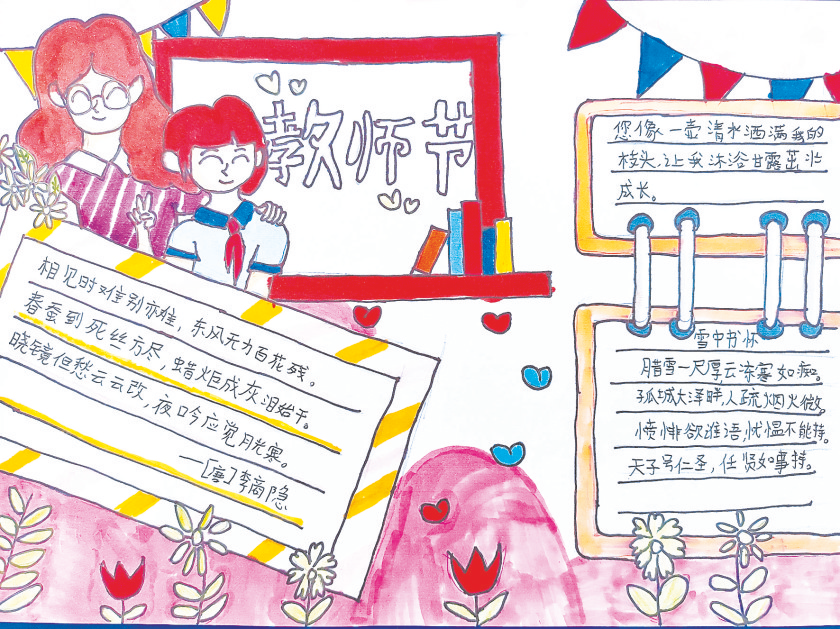 教师节
您像一壶清水洒满我的
枝头,让我沐浴甘露茁壮
成长。
相见时难别亦难,东风无力百花残。
春蚕到死丝方尽,蜡炬成灰泪始干。
晓镜但愁云云改,夜吟应觉月光寒。
—[唐]李商隐
雪中书怀
腊雪一尺厚,云冻寒如痴。
孤城大泽畔,人疏烟火微。
愤悱欲谁语,忧愠不能持。
天子号仁圣,任贤如事持。